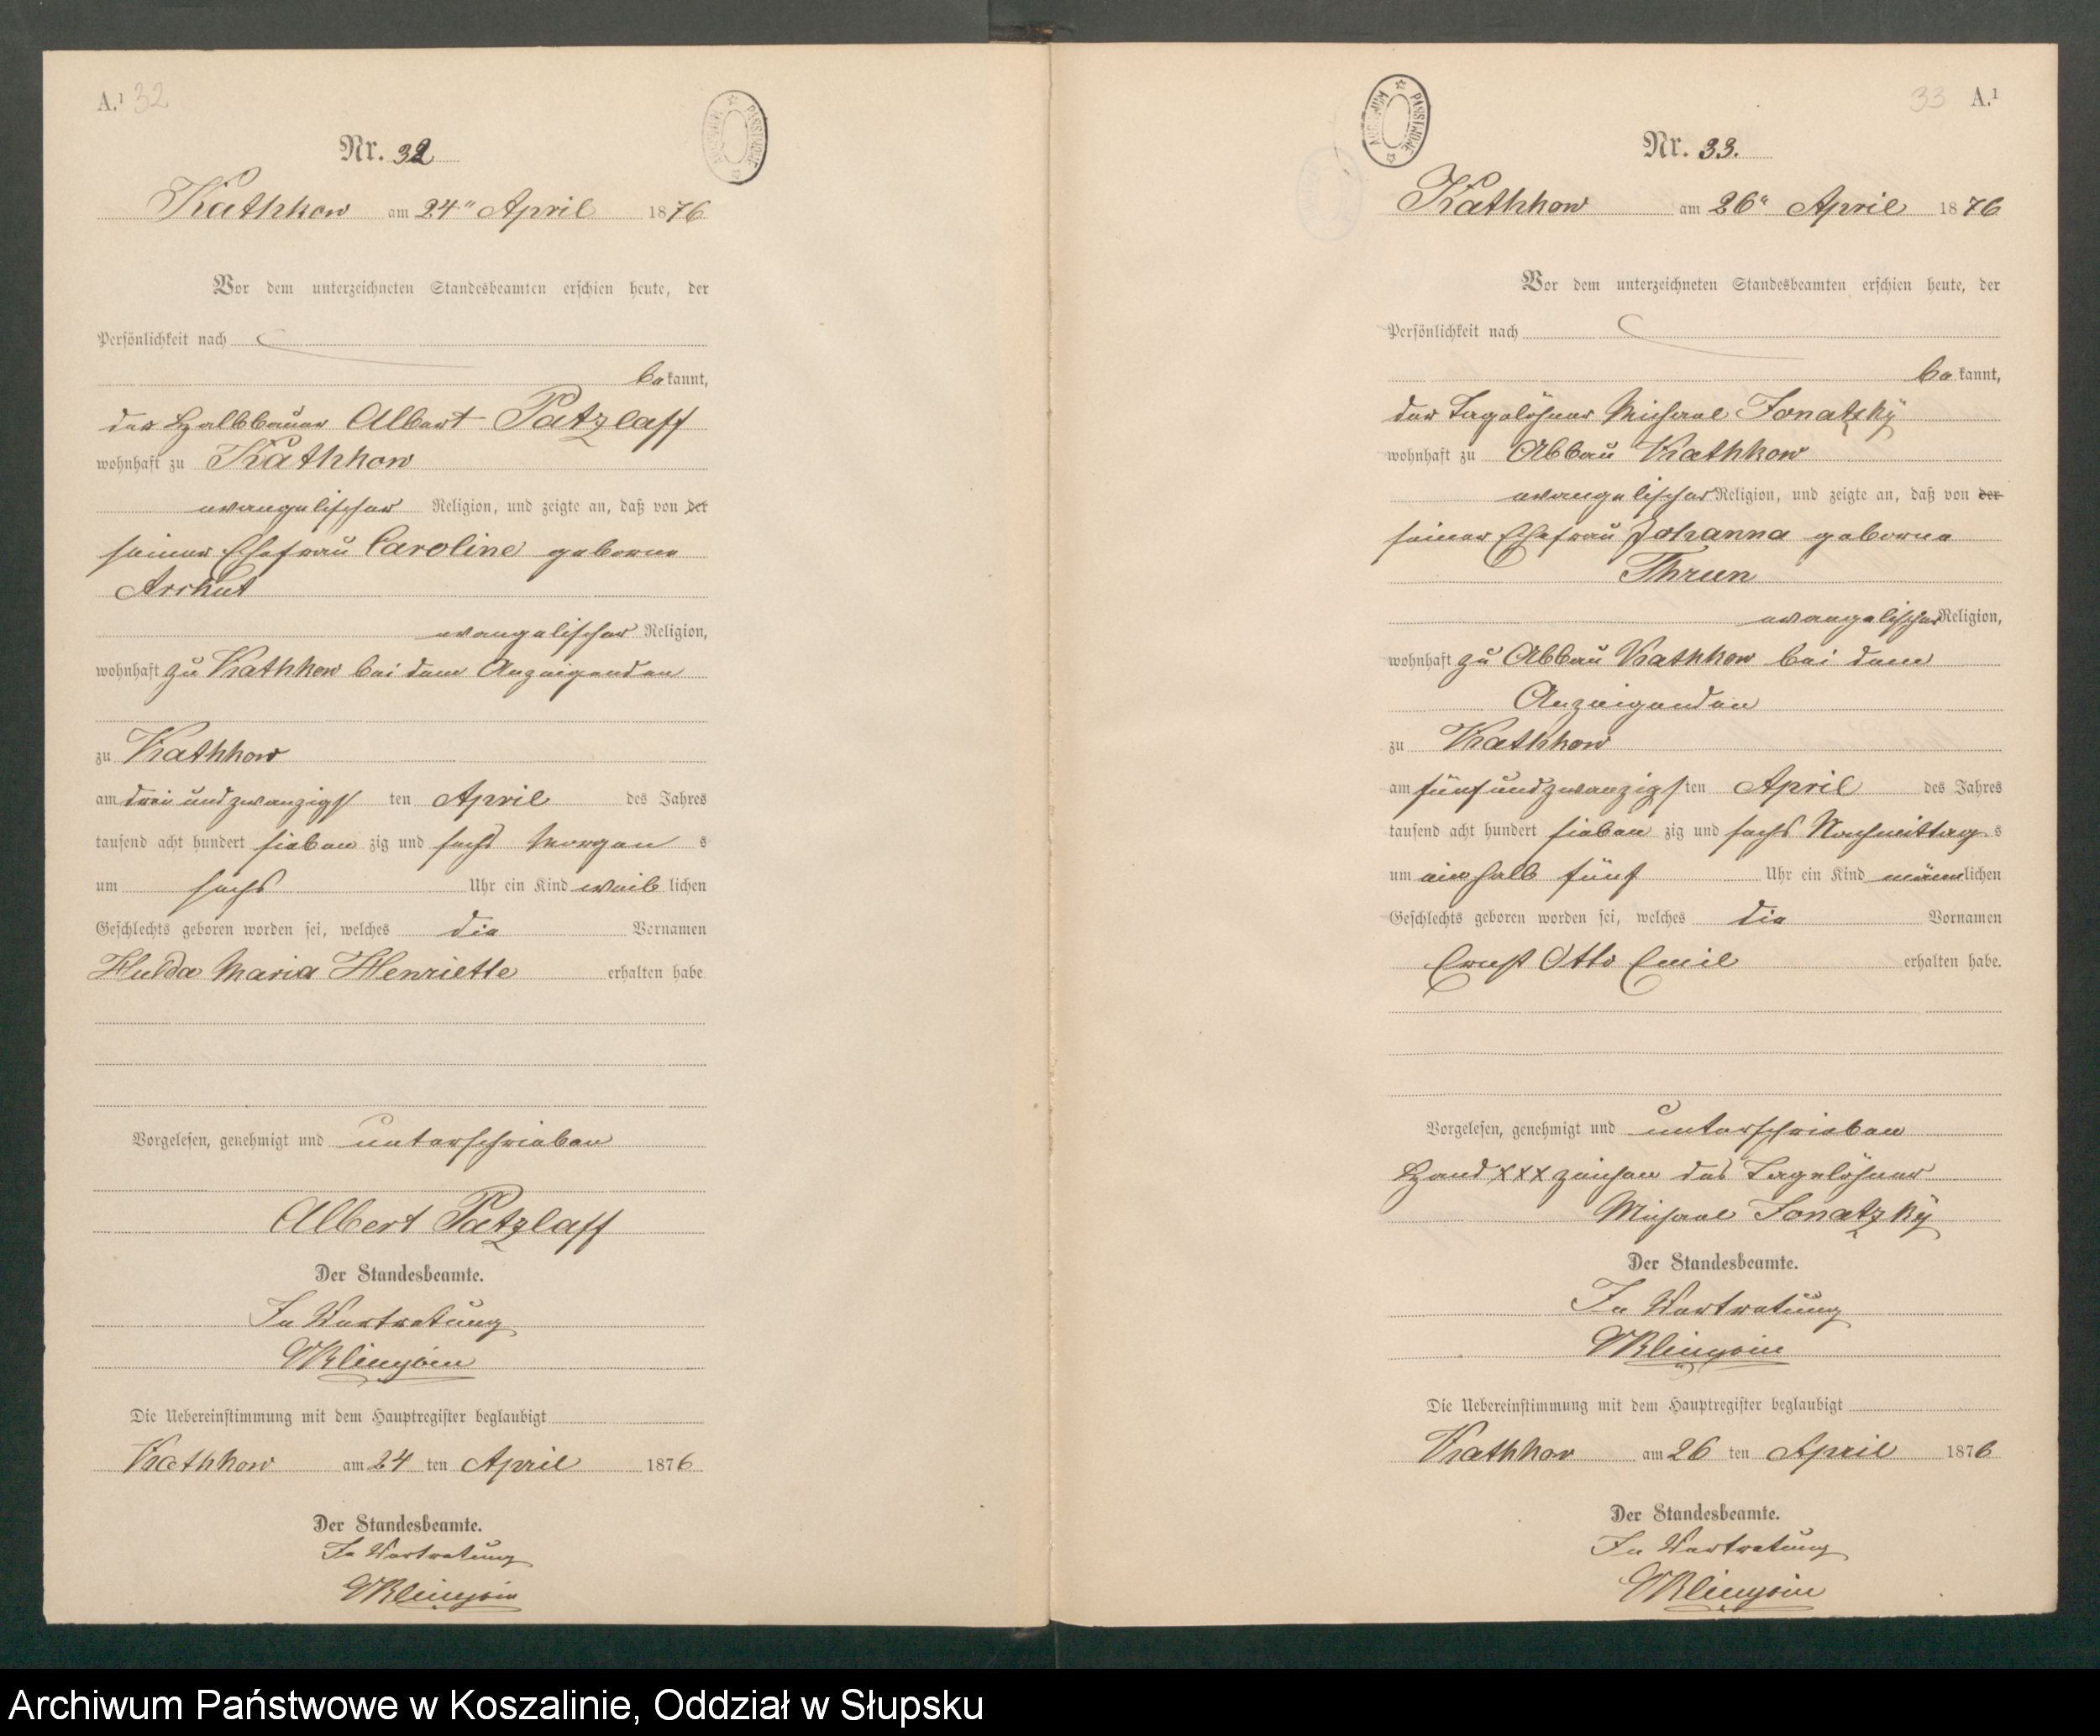 A.¹ 32
Nr. 32
Kathkow am 24n April 1876
Vor dem unterzeichneten Standesbeamten erschien heute, der
Persönlichkeit nach
bekannt,
der Halbbauer Albert Patzlaff
wohnhaft zu Kathkow
evangelischer Religion, und zeigte an, daß von der
seiner Ehefrau Caroline geborne
Arskut
evangelischer Religion,
wohnhaft zu Kathkow bei dem Anzeigenden
zu Kathkow
am drei und zwanzigst ten April des Jahres
tausend acht hundert sieben zig und sechs Morgen s
um sechs Uhr ein Kind weib lichen
Geschlechts geboren worden sei, welches die Vornamen
Hulda Maria Henriette erhalten habe
Vorgelesen, genehmigt und unterschrieben
Albert Patzlaff
Der Standesbeamte.
In Vertretung
Die Uebereinstimmung mit dem Hauptregister beglaubigt
Kathkow am 24 ten April 1876
Der Standesbeamte.
In Vertretung
33 A.¹
ARCHIWUM PAŃSTWOWE
Nr. 33.
Kathkow am 26n April 1876
Vor dem unterzeichneten Standesbeamten erschien heute, der
Persönlichkeit nach
bekannt,
der Tagelöhner Michael Jonatzky
wohnhaft zu Abbau Kathkow
evangelischer Religion, und zeigte an, daß von der
seiner Ehefrau Johanna geborne
Thrun
evangelischer Religion,
wohnhaft zu Abbau Kathkow bei dem
Anzeigenden
zu Kathkow
am fünf und zwanzigsten April des Jahres
tausend acht hundert sieben zig und sechs Nachmittag s
um ein halb fünf Uhr ein Kind männlichen
Geschlechts geboren worden sei, welches die Vornamen
Ernst Otto Emil erhalten habe.
Vorgelesen, genehmigt und unterschrieben
Hand xxx zeichen des Tagelöhner
Michael Jonatzky
Der Standesbeamte.
In Vertretung
Die Uebereinstimmung mit dem Hauptregister beglaubigt
Kathkow am 26 ten April 1876
Der Standesbeamte.
In Vertretung
Archiwum Państwowe w Koszalinie, Oddział w Słupsku